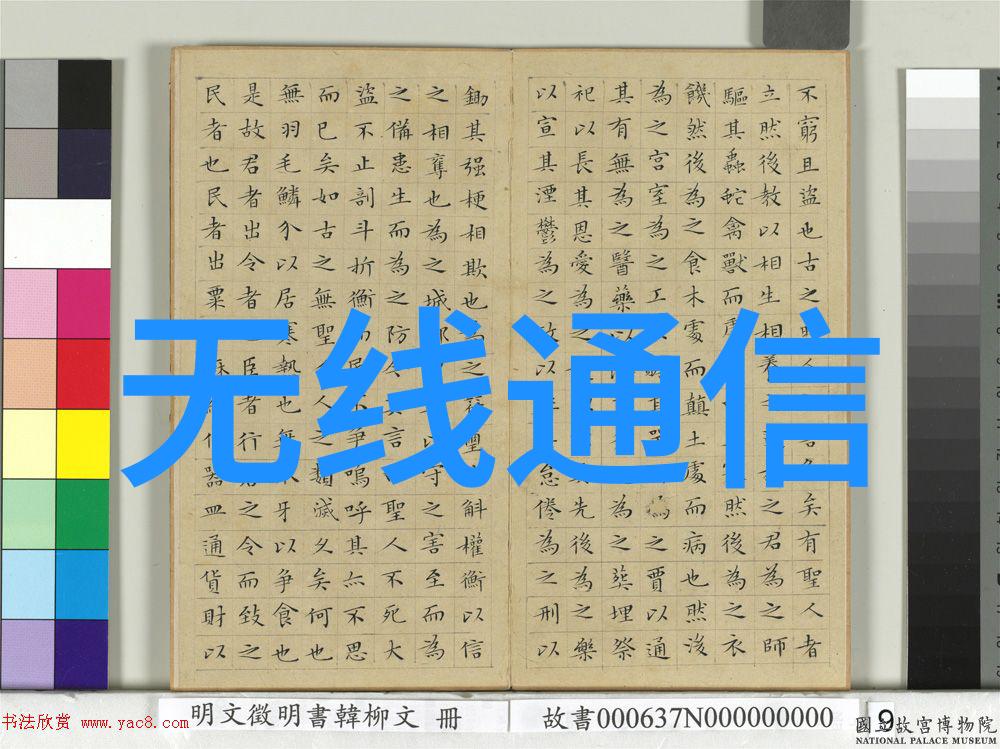 不窮且盜也古之人矣有聖人者
立然後教以相生相養之君為之師
驅其蟲蛇禽獸而處然後為之衣
饑然後為之食木處而顛土處而病也然後
為之宮室為之工為之賈以通
其有無為之醫藥以為之葬埋祭
祀以長其恩愛為之先後為之樂
以宣其湮鬱為之政以怠倦為之刑以
鋤其强梗相欺也為之璽斛權衡以信
之相奪也為之城郭以守之害至而為
之備患生而為之防今其言聖人不死大
盜不止剖斗折衡而民不爭嗚呼其亦不思
而已矣如古之無聖人之類滅久矣何也
無羽毛鱗介以居寒熱也無牙以爭食也
是故君者出令者也臣者行君之令而致之
民者也民者出粟麻作器皿通貨財以
无线通信
明文徵明書韓柳文 冊
故書000637N000000000
9
书法欣赏 www.yac8.com
國立故宮博物院
NATIONAL PALACE MUSEUM